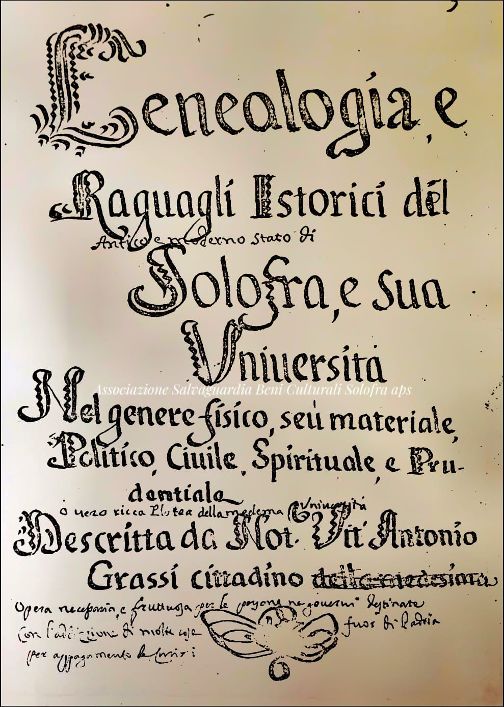 Genealogia, e
Raguagli Istorici del
Antico e moderno stato di
Solofra, e sua
Vniuersità
Associazione Salvaguardia Beni Culturali Solofra aps
Nel genere fisico, seù materiale,
Politico, Ciuile, Spirituale, e Pru-
dentiale
ò vero ricca Platea della medema Università
Descritta da Not. Vit' Antonio
Grassi cittadino della medesima
Opera necessaria, e fruttuosa per le persone ne governi destinate
Con l'addizione di molte cose fuor di Padria
per appagamento de Curiosi